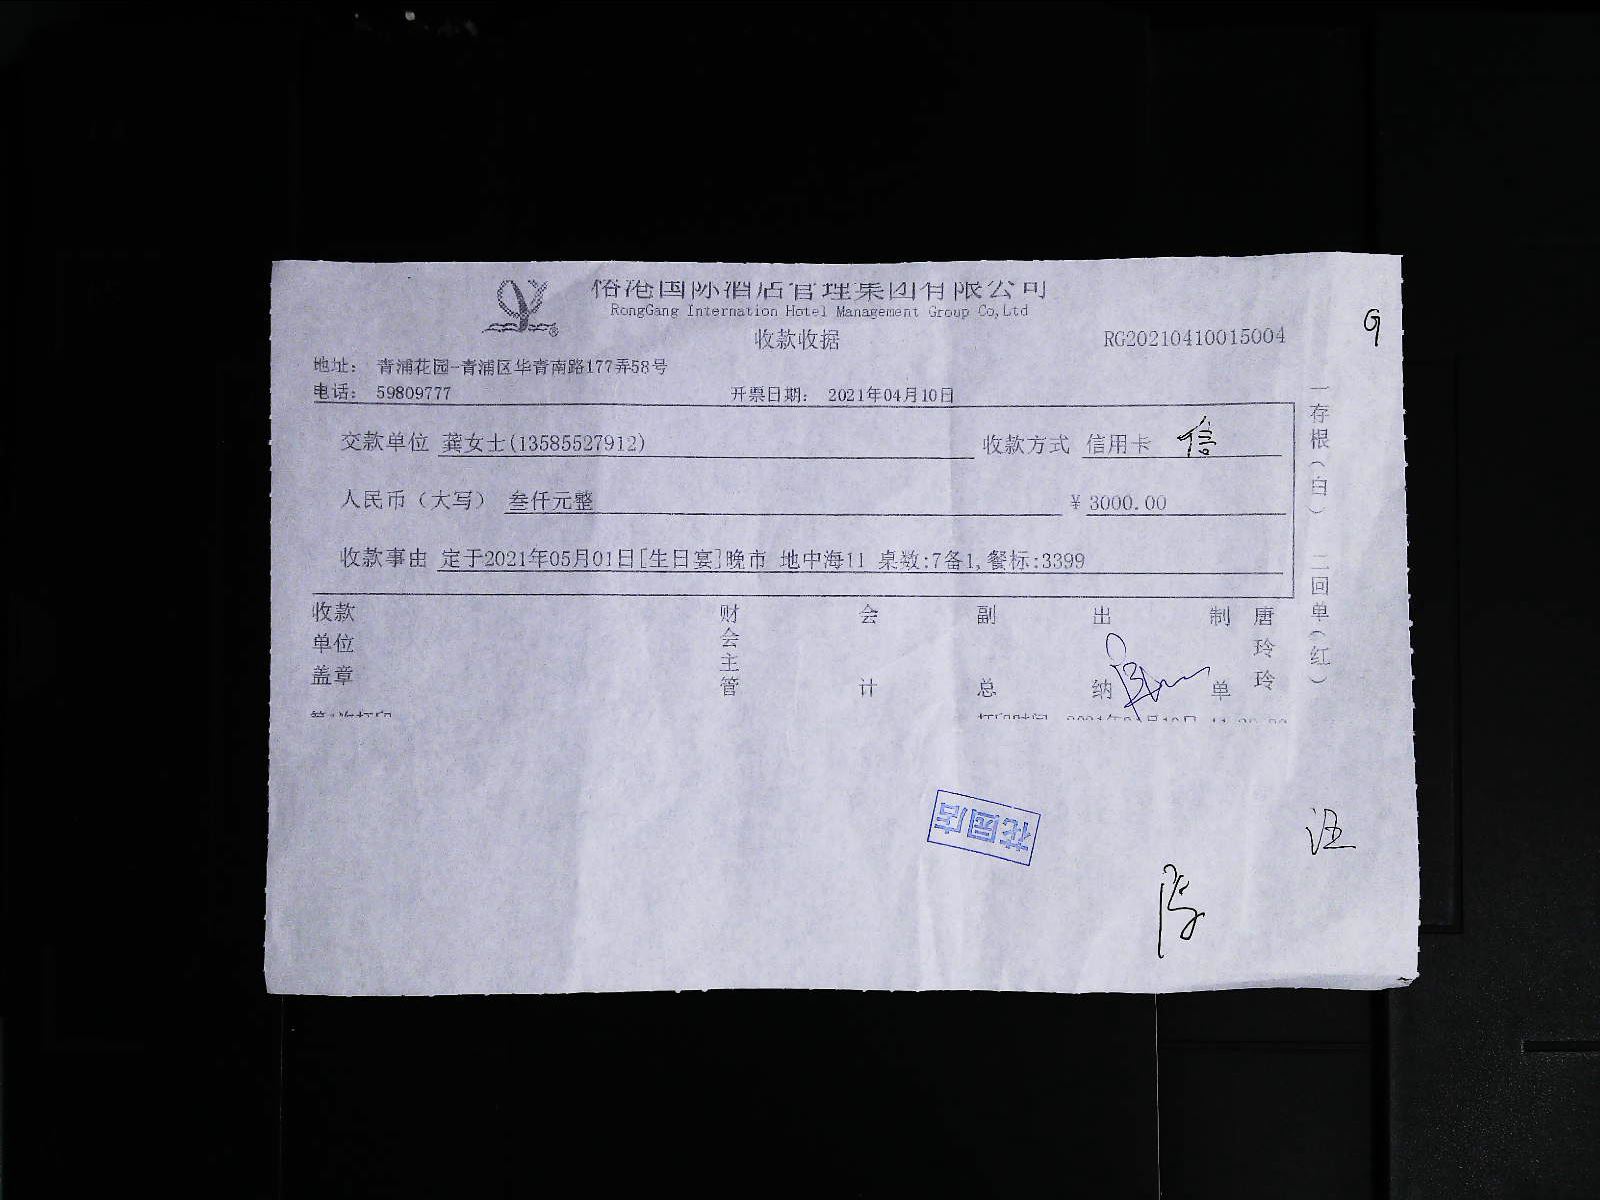 俗港国际酒店管理集团有限公司
RongGang Internation Hotel Management Group Co,Ltd
收款收据
RG20210410015004
G
地址： 青浦花园-青浦区华青南路177弄58号
电话： 59809777 开票日期： 2021年04月10日
交款单位 龚女士(13585527912) 收款方式 信用卡 信
人民币（大写） 叁仟元整 ¥ 3000.00
收款事由 定于2021年05月01日[生日宴]晚市 地中海11 桌数:7备1,餐标:3399
收款单位盖章 财会主管 会计 副总 出纳 制单 唐玲玲
一存根（白） 二回单（红）
花园店
汪